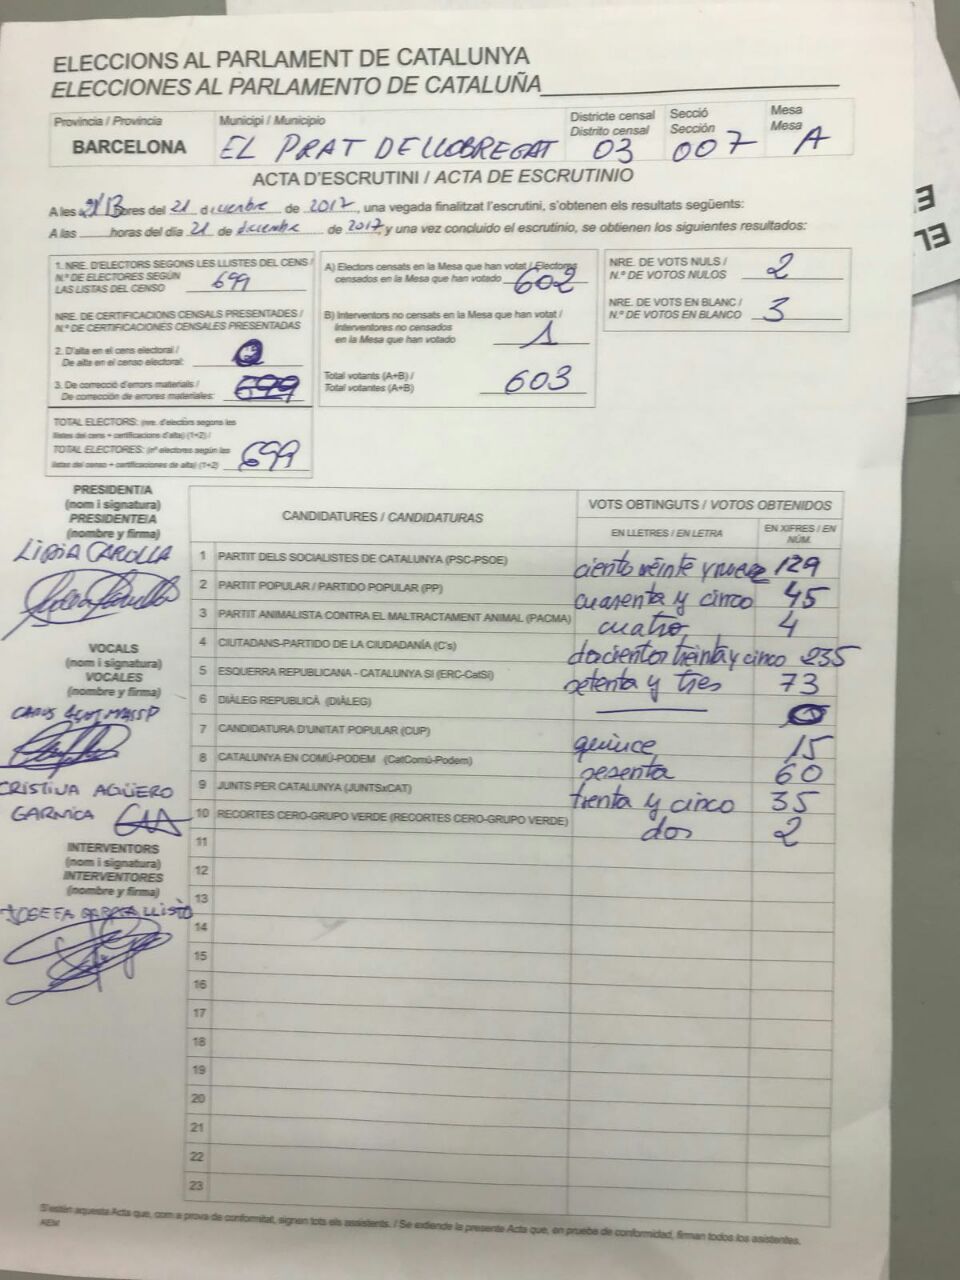 ELECCIONS AL PARLAMENT DE CATALUNYA
ELECCIONES AL PARLAMENTO DE CATALUÑA
Província / Provincia
BARCELONA
Municipi / Municipio
EL PRAT DE LLOBREGAT
Districte censal
Distrito censal
03
Secció
Sección
007
Mesa
Mesa
A
ACTA D'ESCRUTINI / ACTA DE ESCRUTINIO
A les hores del 21 diciembre de 2017, una vegada finalitzat l'escrutini, s'obtenen els resultats següents:
A las horas del día 21 de diciembre de 2017, y una vez concluido el escrutinio, se obtienen los siguientes resultados:
1. NRE. D'ELECTORS SEGONS LES LLISTES DEL CENS /
N.º DE ELECTORES SEGÚN
LAS LISTAS DEL CENSO 699
NRE. DE CERTIFICACIONS CENSALS PRESENTADES /
N.º DE CERTIFICACIONES CENSALES PRESENTADAS
2. D'alta en el cens electoral /
De alta en el censo electoral: 0
3. De correcció d'errors materials /
De corrección de errores materiales: 699
TOTAL ELECTORS: (nre. d'electors segons les
llistes del cens + certificacions d'alta) (1+2) /
TOTAL ELECTORES: (nº electores según las
listas del censo + certificaciones de alta) (1+2) 699
A) Electors censats en la Mesa que han votat / Electores
censados en la Mesa que han votado 602
B) Interventors no censats en la Mesa que han votat /
Interventores no censados
en la Mesa que han votado 1
Total votants (A+B) /
Total votantes (A+B) 603
NRE. DE VOTS NULS /
N.º DE VOTOS NULOS 2
NRE. DE VOTS EN BLANC /
N.º DE VOTOS EN BLANCO 3
PRESIDENT/A
(nom i signatura)
PRESIDENTE/A
(nombre y firma)
LIDIA CAROLLA
VOCALS
(nom i signatura)
VOCALES
(nombre y firma)
CRISTINA AGÜERO
GARNICA
INTERVENTORS
(nom i signatura)
INTERVENTORES
(nombre y firma)
JOSEFA GARCIA
CANDIDATURES / CANDIDATURAS
VOTS OBTINGUTS / VOTOS OBTENIDOS
EN LLETRES / EN LETRA
EN XIFRES / EN
NÚM.
1 PARTIT DELS SOCIALISTES DE CATALUNYA (PSC-PSOE) ciento veinte y nueve 129
2 PARTIT POPULAR / PARTIDO POPULAR (PP) cuarenta y cinco 45
3 PARTIT ANIMALISTA CONTRA EL MALTRACTAMENT ANIMAL (PACMA) cuatro 4
4 CIUTADANS-PARTIDO DE LA CIUDADANÍA (C's) doscientos treinta y cinco 235
5 ESQUERRA REPUBLICANA - CATALUNYA SI (ERC-CatSI) setenta y tres 73
6 DIÀLEG REPUBLICÀ (DIÀLEG) 0
7 CANDIDATURA D'UNITAT POPULAR (CUP) quince 15
8 CATALUNYA EN COMÚ-PODEM (CatComú-Podem) sesenta 60
9 JUNTS PER CATALUNYA (JUNTSxCAT) trenta y cinco 35
10 RECORTES CERO-GRUPO VERDE (RECORTES CERO-GRUPO VERDE) dos 2
11
12
13
14
15
16
17
18
19
20
21
22
23
S'estén aquesta Acta que, com a prova de conformitat, signen tots els assistents. / Se extiende la presente Acta que, en prueba de conformidad, firman todos los asistentes.